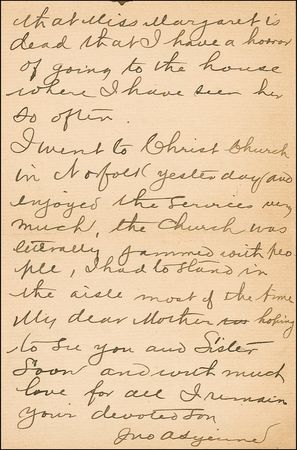 that Miss Margaret is
dead that I have a horror
of going to the house
where I have seen her
so often.
I went to Christ Church
in Norfolk yesterday and
enjoyed the services very
much, the Church was
literally jammed with peo
ple, I had to stand in
the aisle most of the time
My dear Mother hoping
to see you and Sister
soon and with much
love for all I remain
your devoted son
Jno